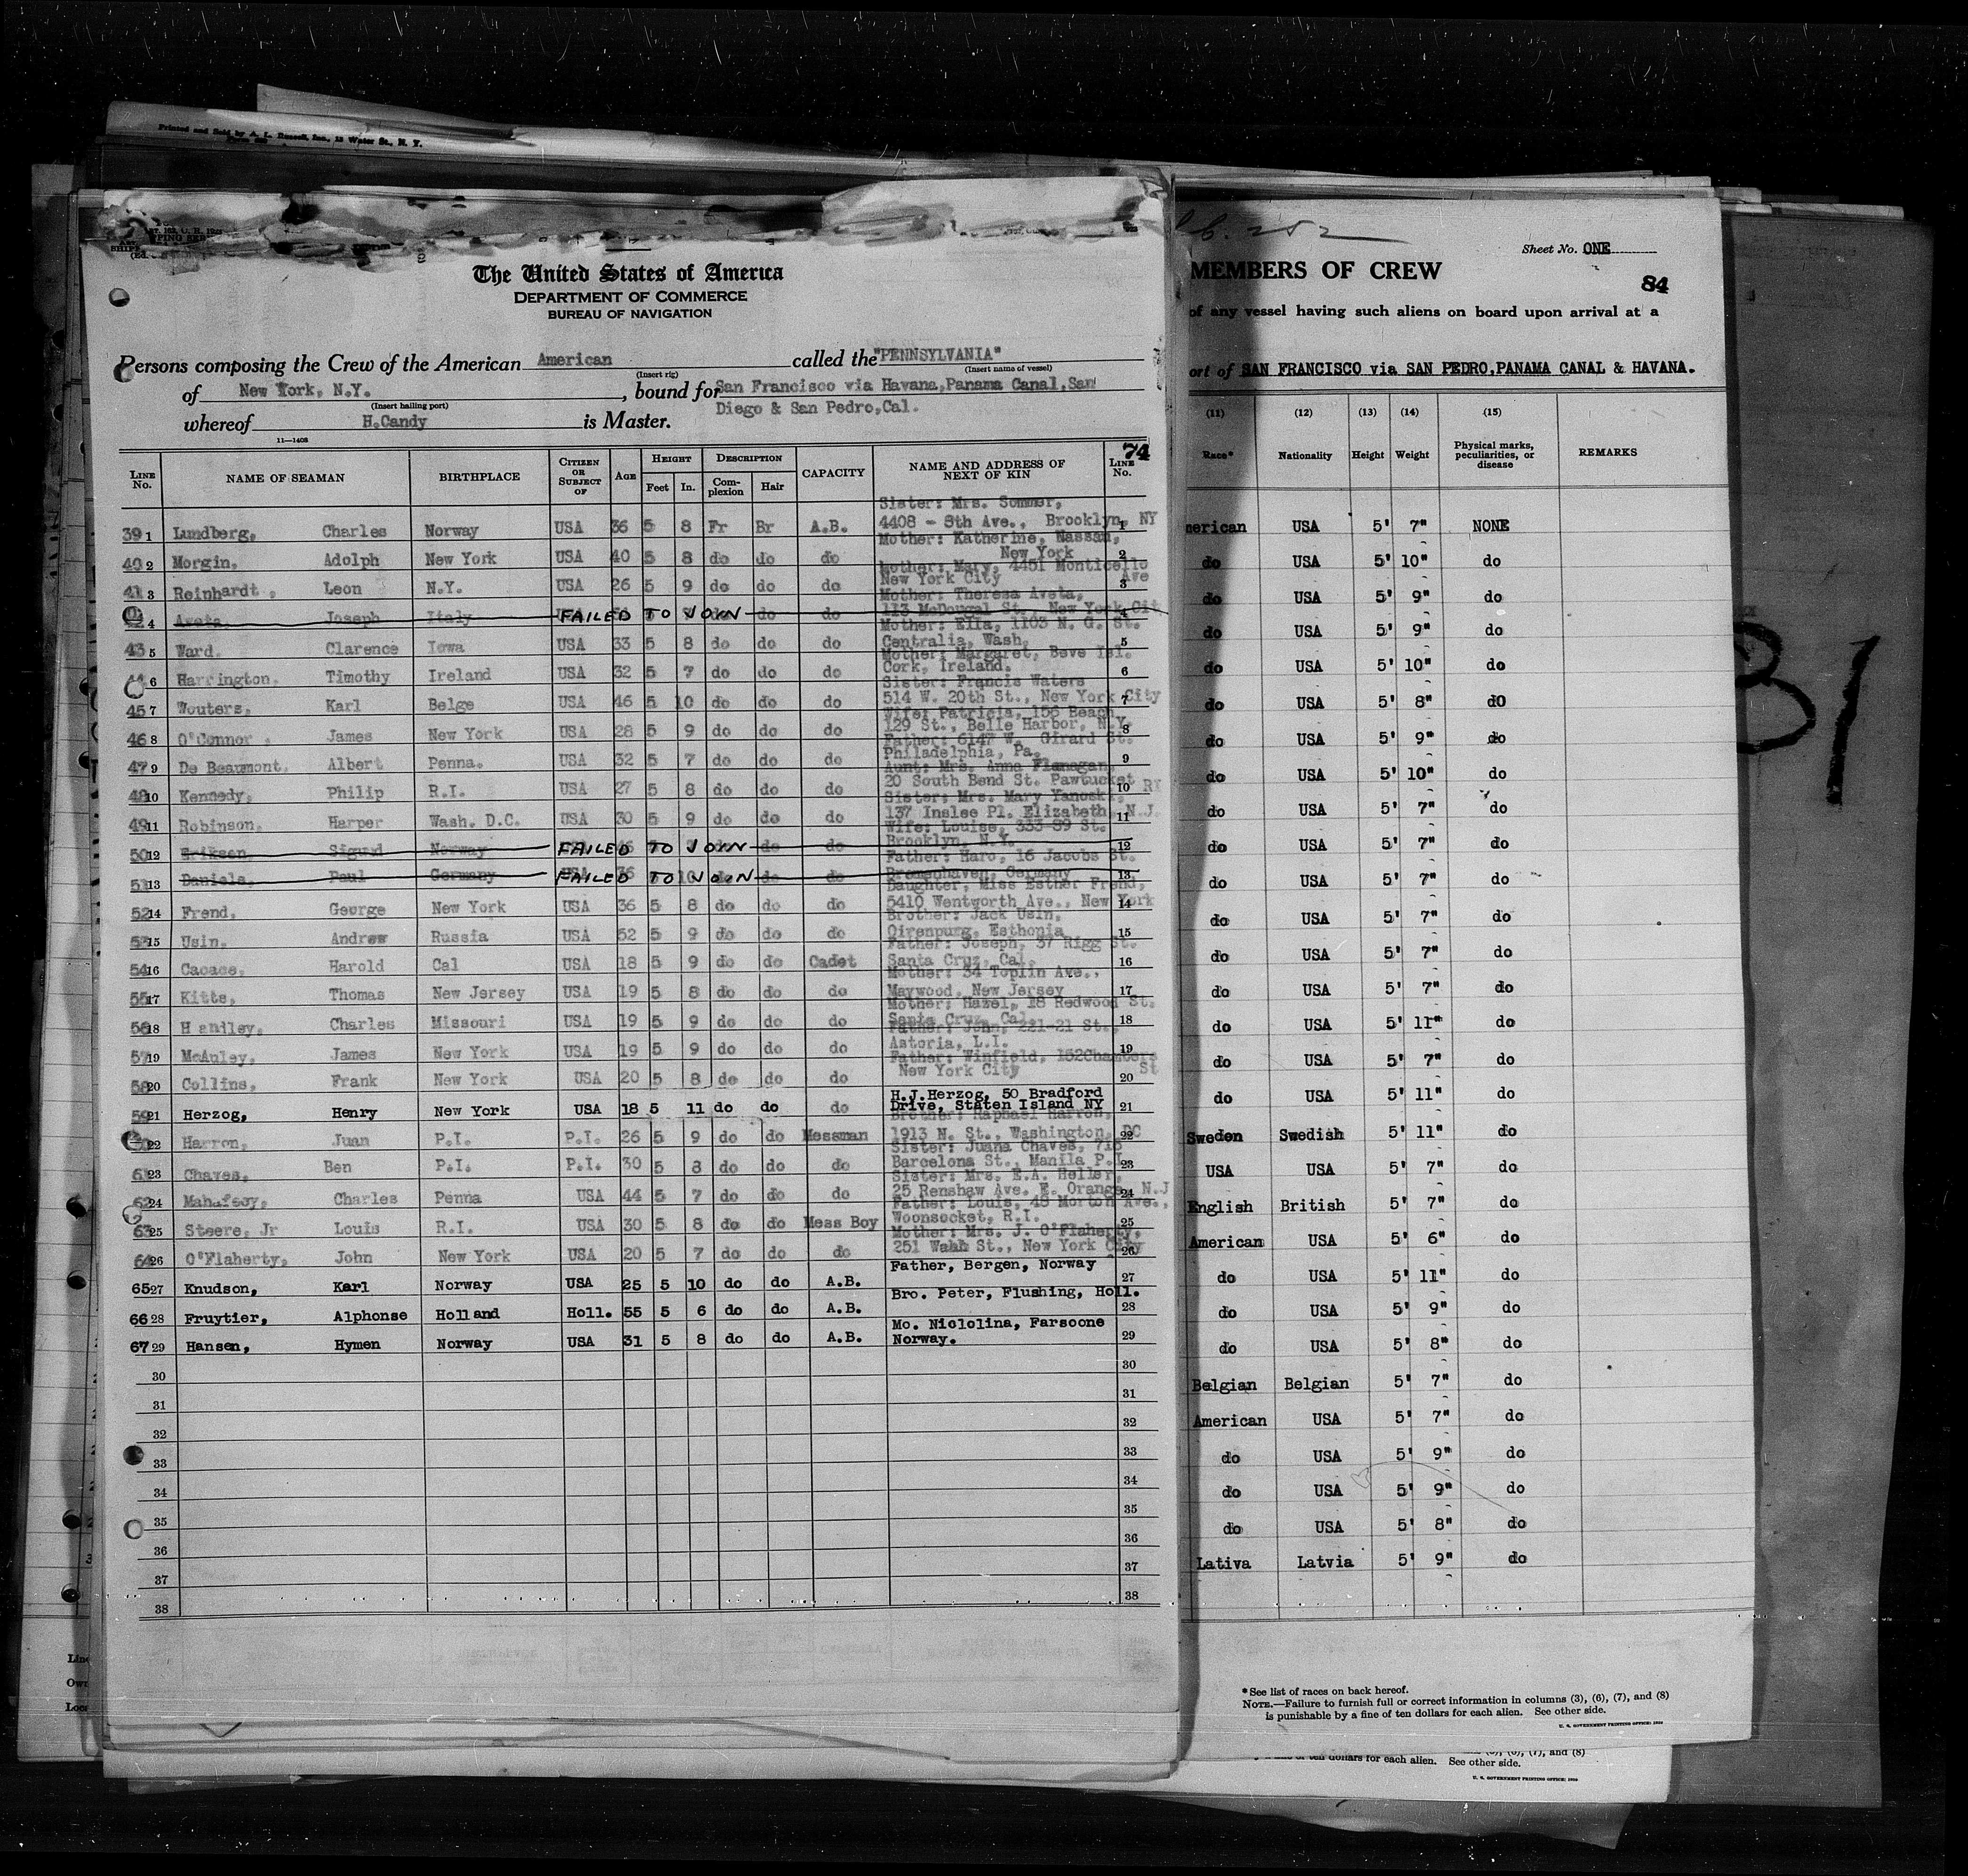 Printed and Sold by A. L. Russell, Inc., 13 Water St., N. Y.
The United States of America
DEPARTMENT OF COMMERCE
BUREAU OF NAVIGATION
Persons composing the Crew of the American American called the "PENNSYLVANIA"
(Insert rig) (Insert name of vessel)
of New York, N.Y. , bound for San Francisco via Havana, Panama Canal, San
(Insert hailing port) Diego & San Pedro, Cal.
whereof H. Candy is Master.
11—1408
74
LINE No. NAME OF SEAMAN BIRTHPLACE CITIZEN OR SUBJECT OF AGE HEIGHT Feet In. DESCRIPTION Complexion Hair CAPACITY NAME AND ADDRESS OF NEXT OF KIN LINE No.
Sister: Mrs. Sommer,
39 1 Lundberg, Charles Norway USA 36 5 8 Fr Br A.B. 4408 - 8th Ave., Brooklyn, NY 1
Mother: Katherine, Nassau,
40 2 Morgin, Adolph New York USA 40 5 8 do do do New York 2
Mother: Mary, 4451 Monticello
41 3 Reinhardt, Leon N.Y. USA 26 5 9 do do do New York City Ave 3
Mother: Theresa Aveta,
4 Aveta Joseph Italy FAILED TO JOIN do do 113 McDougal St., New York Cit 4
Mother: Ella, 1103 N. G. St.
43 5 Ward. Clarence Iowa USA 33 5 8 do do do Centralia, Wash. 5
Mother: Margaret, Beve Isl.
6 Harrington, Timothy Ireland USA 32 5 7 do do do Cork, Ireland. 6
Sister: Francis Waters
45 7 Wouters, Karl Belge USA 46 5 10 do do do 514 W. 20th St., New York City 7
Wife: Patricia, 156 Beach
46 8 O'Connor, James New York USA 28 5 9 do do do 129 St., Belle Harbor, N.Y. 8
Father: 6147 W. Girard St.
47 9 De Beaumont, Albert Penna. USA 32 5 7 do do do Philadelphia, Pa. 9
Aunt: Mrs. Anna Flanagan,
48 10 Kennedy, Philip R.I. USA 27 5 8 do do do 20 South Bend St. Pawtucket RI 10
Sister: Mrs. Mary Yanoski,
49 11 Robinson, Harper Wash. D.C. USA 30 5 9 do do do 137 Inslee Pl. Elizabeth, N.J. 11
Wife: Louise, 333-89 St.
50 12 Eriksen, Sigurd Norway FAILED TO JOIN do do Brooklyn, N.Y. 12
Father: Haro, 16 Jacobs St.
51 13 Daniels, Paul Germany FAILED TO JOIN do do Bremenhaven, Germany 13
Daughter, Miss Esther Frend,
52 14 Frend, George New York USA 36 5 8 do do do 5410 Wentworth Ave., New York 14
Brother: Jack Usin,
53 15 Usin. Andrew Russia USA 52 5 9 do do do Oirenpurg, Esthonia 15
Father: Joseph, 37 Rigg St.
54 16 Cacace, Harold Cal USA 18 5 9 do do Cadet Santa Cruz, Cal. 16
Mother: 34 Toplin Ave.,
55 17 Kitts, Thomas New Jersey USA 19 5 8 do do do Maywood, New Jersey 17
Mother: Hazel, 18 Redwood St.
56 18 Handley, Charles Missouri USA 19 5 9 do do do Santa Cruz, Cal. 18
Father: John, 221-21 St.,
57 19 McAuley, James New York USA 19 5 9 do do do Astoria, L.I. 19
Father: Winfield, 152 Chambers
58 20 Collins, Frank New York USA 20 5 8 do do do New York City St 20
H.J. Herzog, 50 Bradford
59 21 Herzog, Henry New York USA 18 5 11 do do do Drive, Staten Island NY 21
Brother: Raphael Harron,
22 Harron, Juan P.I. P.I. 26 5 9 do do Messman 1913 N. St., Washington, DC 22
Sister: Juana Chaves, 716
61 23 Chaves, Ben P.I. P.I. 30 5 8 do do do Barcelona St., Manila P.I. 23
Sister: Mrs. E.A. Heller,
62 24 Mahafeoy, Charles Penna USA 44 5 7 do do do 25 Renshaw Ave. E. Orange, N.J 24
Father: Louis, 48 Morton Ave.,
63 25 Steere, Jr Louis R.I. USA 30 5 8 do do Mess Boy Woonsocket, R.I. 25
Mother: Mrs. J. O'Flaherty,
64 26 O'Flaherty, John New York USA 20 5 7 do do do 251 Wahh St., New York City 26
Father, Bergen, Norway
65 27 Knudson, Karl Norway USA 25 5 10 do do A.B. 27
Bro. Peter, Flushing, Holl.
66 28 Fruytier, Alphonse Holland Holl. 55 5 6 do do A.B. 28
Mo. Niololina, Farsoone
67 29 Hansen, Hymen Norway USA 31 5 8 do do A.B. Norway. 29
30 30
31 31
32 32
33 33
34 34
35 35
36 36
37 37
38 38
Sheet No. ONE
MEMBERS OF CREW
84
of any vessel having such aliens on board upon arrival at a
ort of SAN FRANCISCO via SAN PEDRO, PANAMA CANAL & HAVANA.
(11) (12) (13) (14) (15)
Race* Nationality Height Weight Physical marks, peculiarities, or disease REMARKS
merican USA 5' 7" NONE
do USA 5' 10" do
do USA 5' 9" do
do USA 5' 9" do
do USA 5' 10" do
do USA 5' 8" dO
do USA 5' 9" do
do USA 5' 10" do
do USA 5' 7" do
do USA 5' 7" do
do USA 5' 7" do
do USA 5' 7" do
do USA 5' 7" do
do USA 5' 7" do
do USA 5' 11" do
do USA 5' 7" do
do USA 5' 11" do
Sweden Swedish 5' 11" do
USA USA 5' 7" do
English British 5' 7" do
American USA 5' 6" do
do USA 5' 11" do
do USA 5' 9" do
do USA 5' 8" do
Belgian Belgian 5' 7" do
American USA 5' 7" do
do USA 5' 9" do
do USA 5' 9" do
do USA 5' 8" do
Lativa Latvia 5' 9" do
*See list of races on back hereof.
NOTE.—Failure to furnish full or correct information in columns (3), (6), (7), and (8)
is punishable by a fine of ten dollars for each alien. See other side.
U. S. GOVERNMENT PRINTING OFFICE:
(6), (7), and (8)
of ten dollars for each alien. See other side.
U. S. GOVERNMENT PRINTING OFFICE: